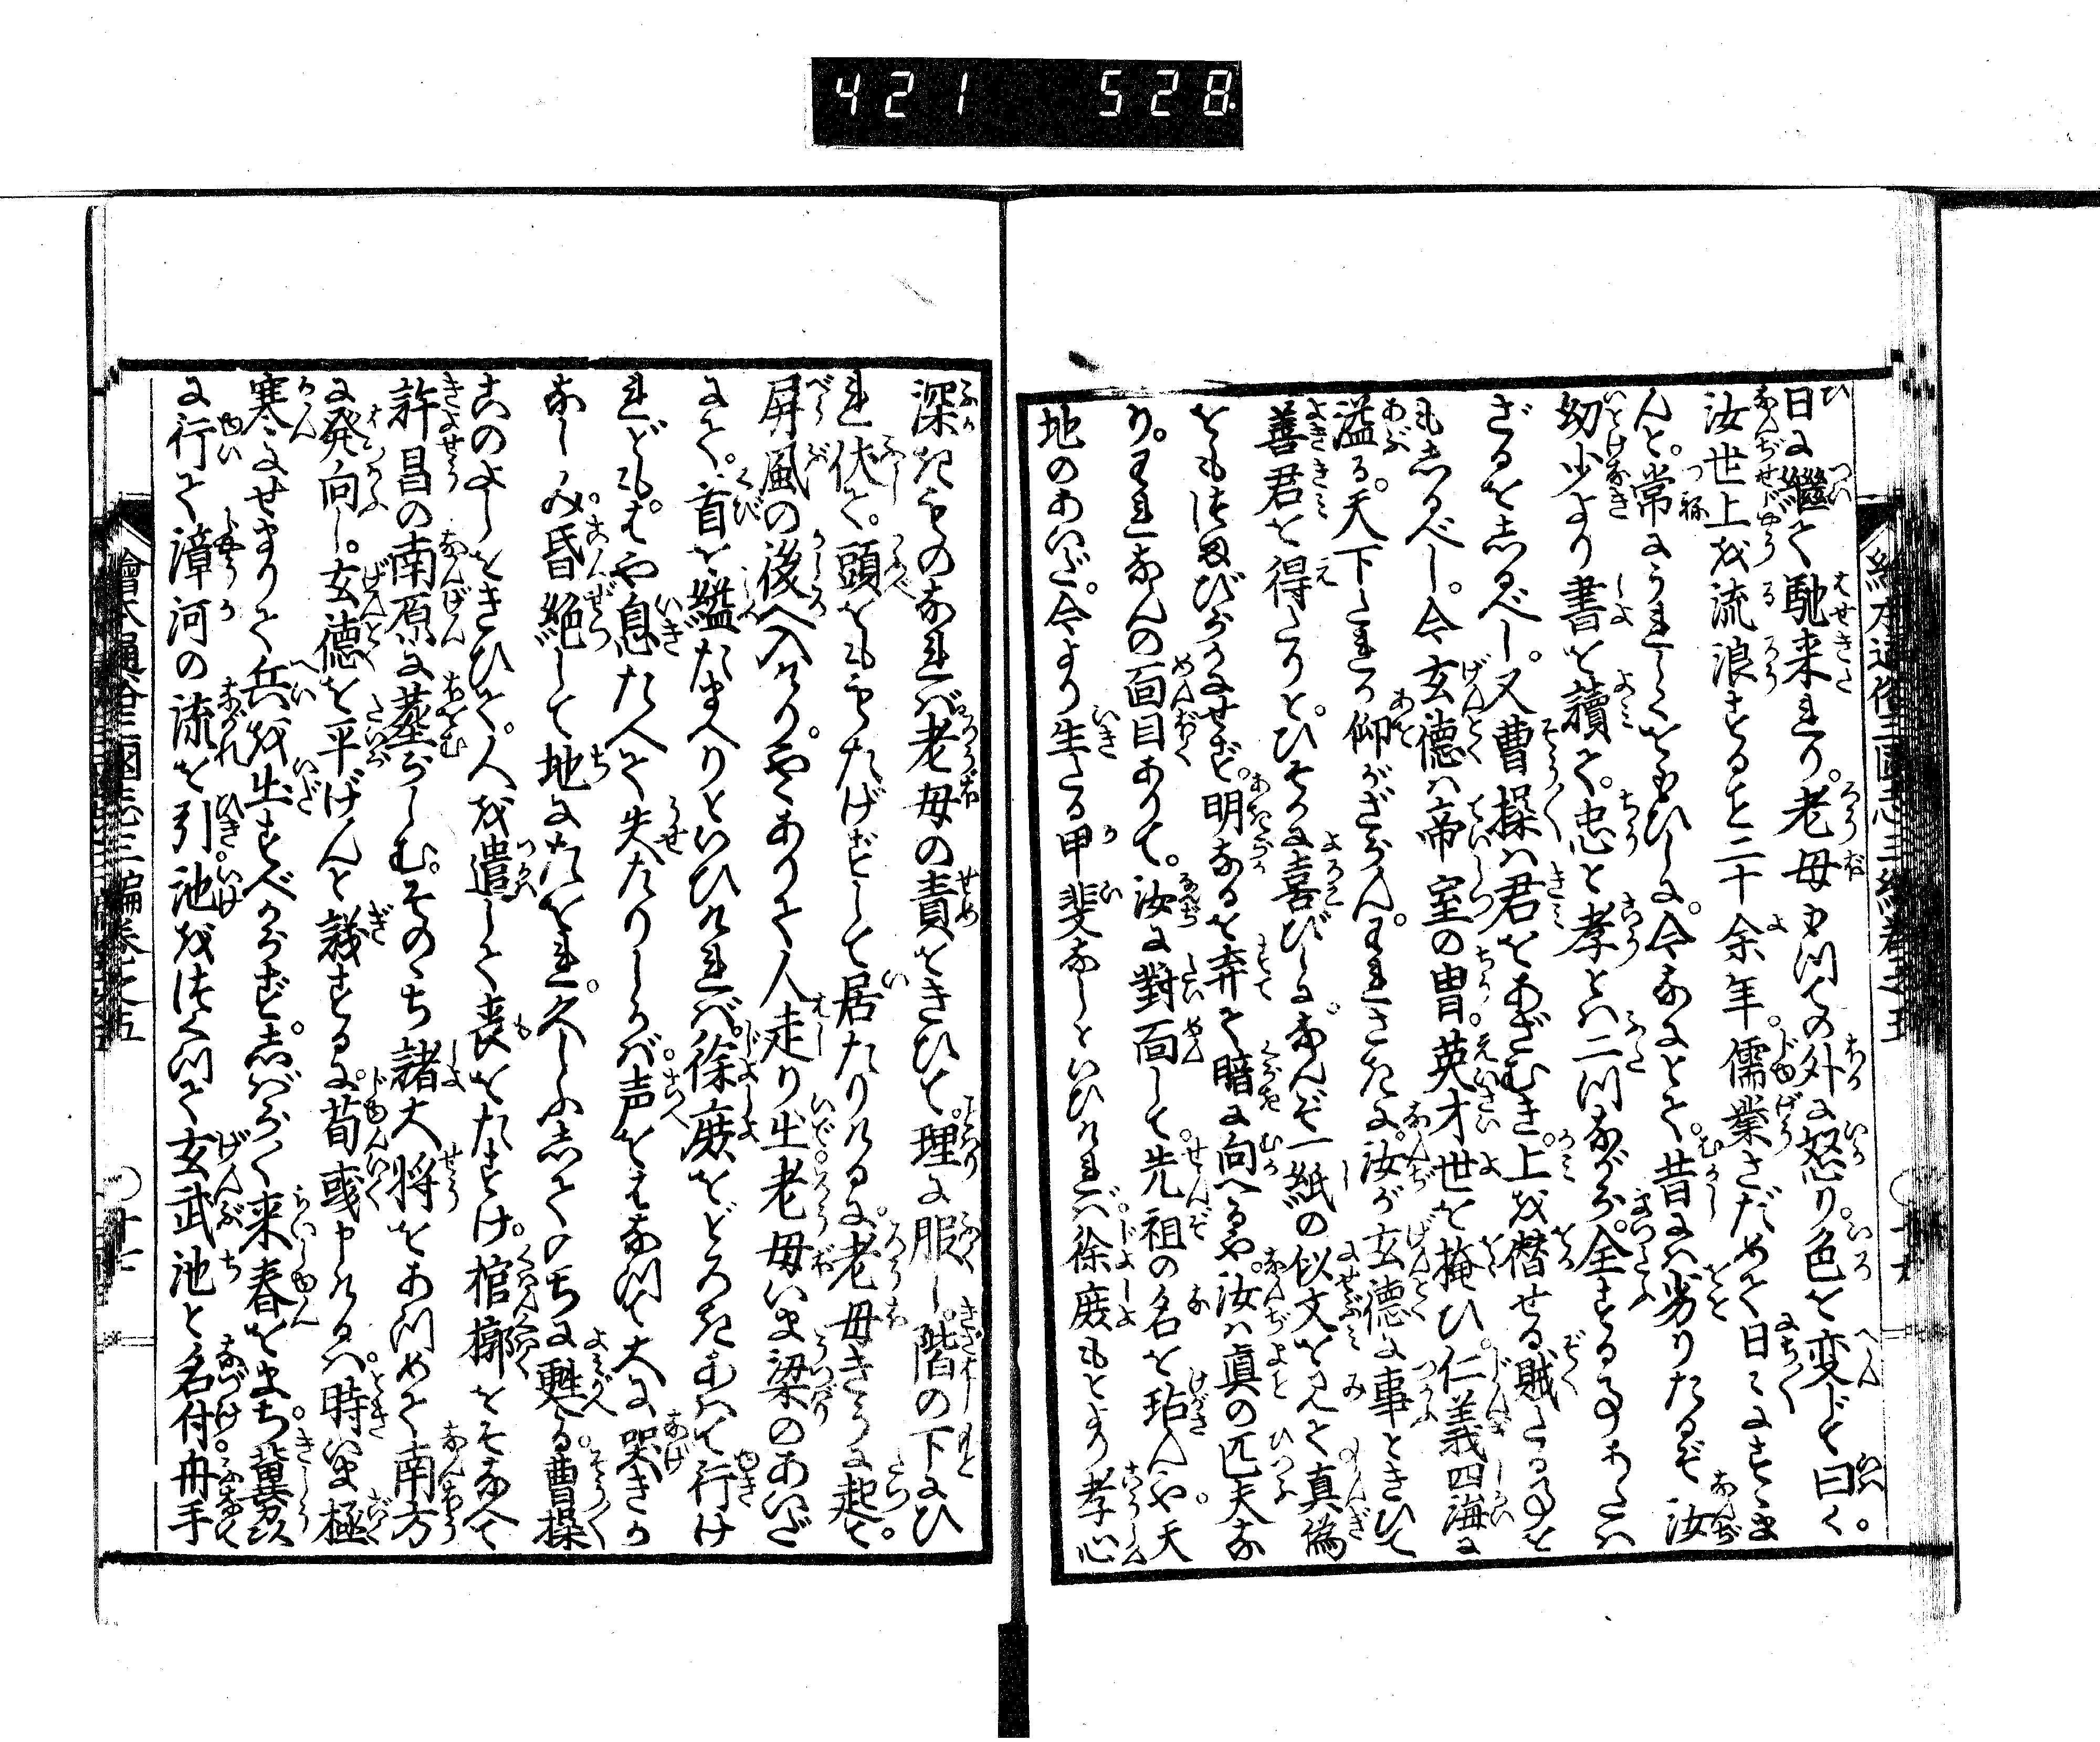 421 528
日に継て馳来れり。老母もつての外に怒り。色を変じて曰く。
汝世上を流浪すること二十余年。儒業さだめて日々にすゝま
んと。常にうれしくをもひしに。今なにとて。昔には劣りたるぞ汝
幼少より書を読て。忠と孝とは二つながら全する事あたは
ざるをしるべし。又曹操は君をあざむき。上を僭せる賊たる事を
もしるべし。今玄徳は帝室の冑。英才世を掩ひ。仁義四海に
溢る。天下たれか仰がざらん。われさきに。汝が玄徳に事ときひて
善君を得たりと。ひそかに喜びしに。なんぞ一紙の似文をみて真偽
をも
明なるを弃て暗に向へるや。汝は真の匹夫な
り。われなんの面目ありて。汝に対面して。先祖の名を玷んや。天
地のあいだ。今より生たる甲斐なしといひければ。徐庶もとより孝心
深きものなれば老母の責をきひて。理に服し。階の下にひ
れ伏て。頭をももたげずして居たりけるに。老母きうに起て。
屏風の後へ入けり。やゝありて人走り出。老母いま梁のあいだ
にて。首を縊たまへりといひければ。徐庶をどろきむかへて行け
れども。はや息たへて失たりしかば。声をはなつて大に哭きか
なしみ。昏絶して地にたをれ。久しふしてのちに甦る。曹操
このよしをきひて。人を遣して喪をたすけ。棺槨をそなへて
許昌の南原に葬らしむ。そのゝち諸大将をあつめて南方
に発向し。玄徳を平げんと議するに。荀彧申けるは。時いま極
寒にせまりて兵を出すべからず。しばらく来春をまち。冀州
に行て漳河の流を引。池をほつて玄武池と名付。舟手
絵本通俗三国志三編巻之五
十七